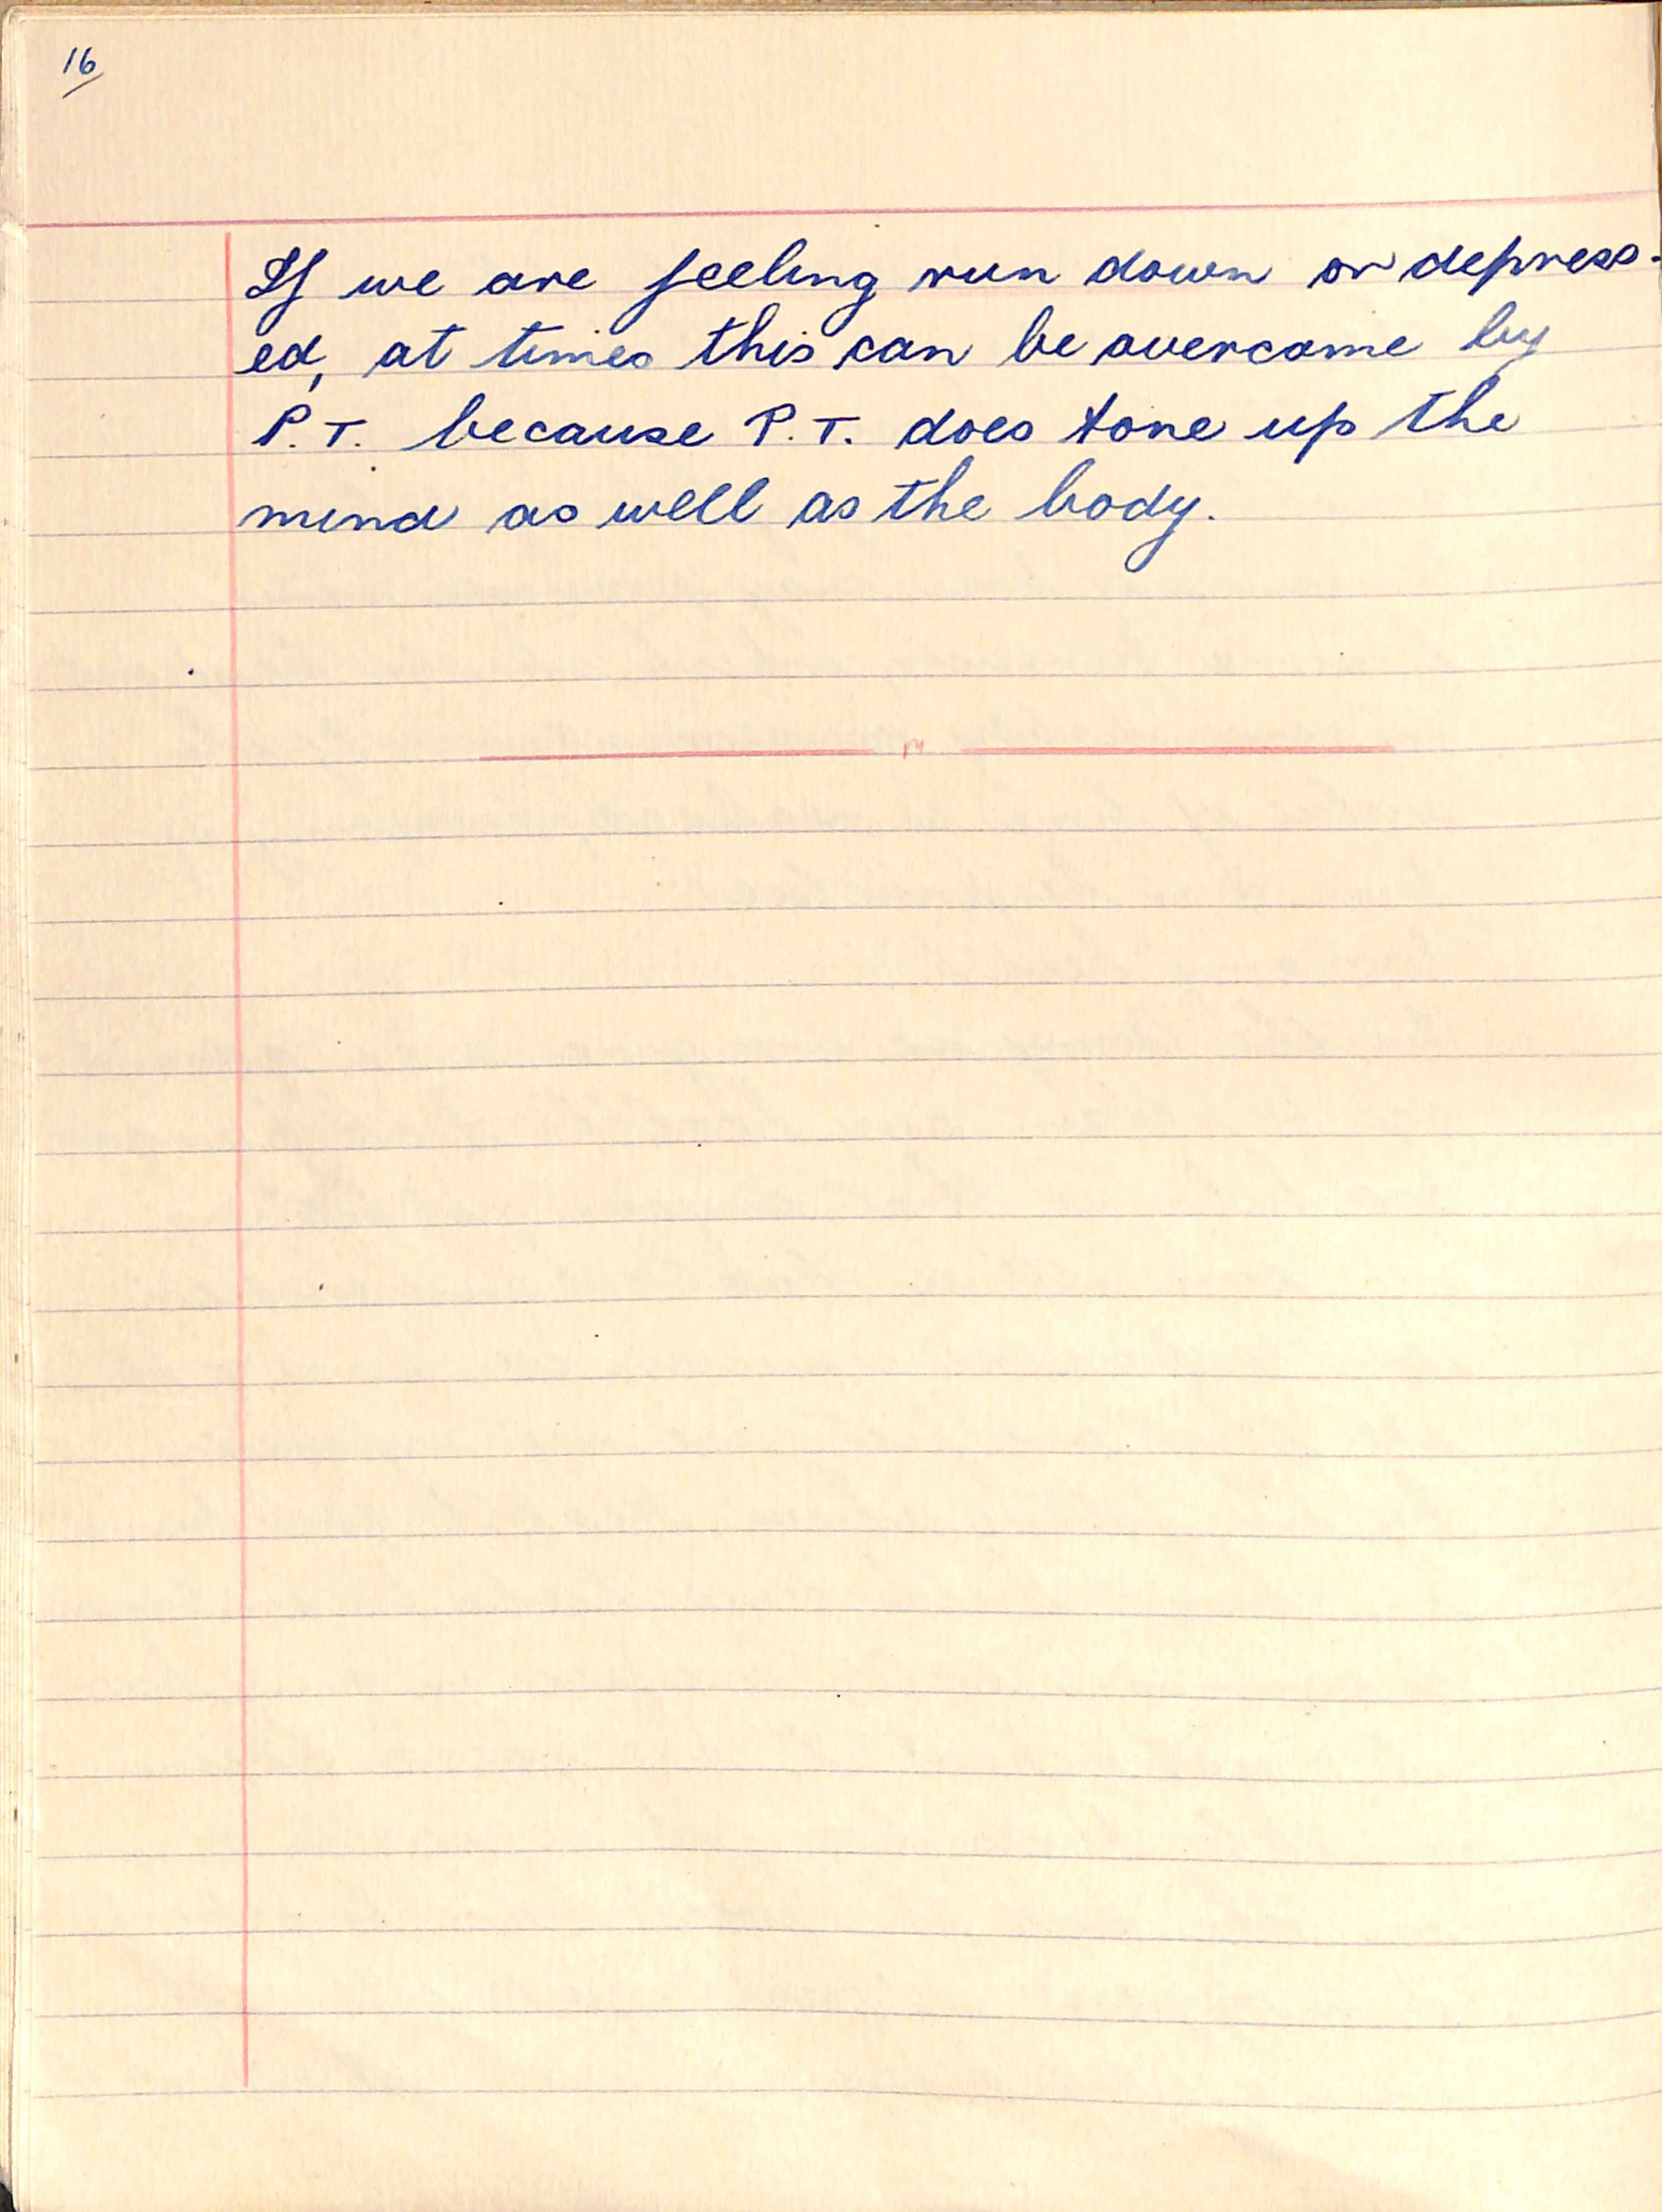 16
If we are feeling run down or depress-
ed, at times this can be overcome by
P.T. because P.T. does tone up the
mind as well as the body.